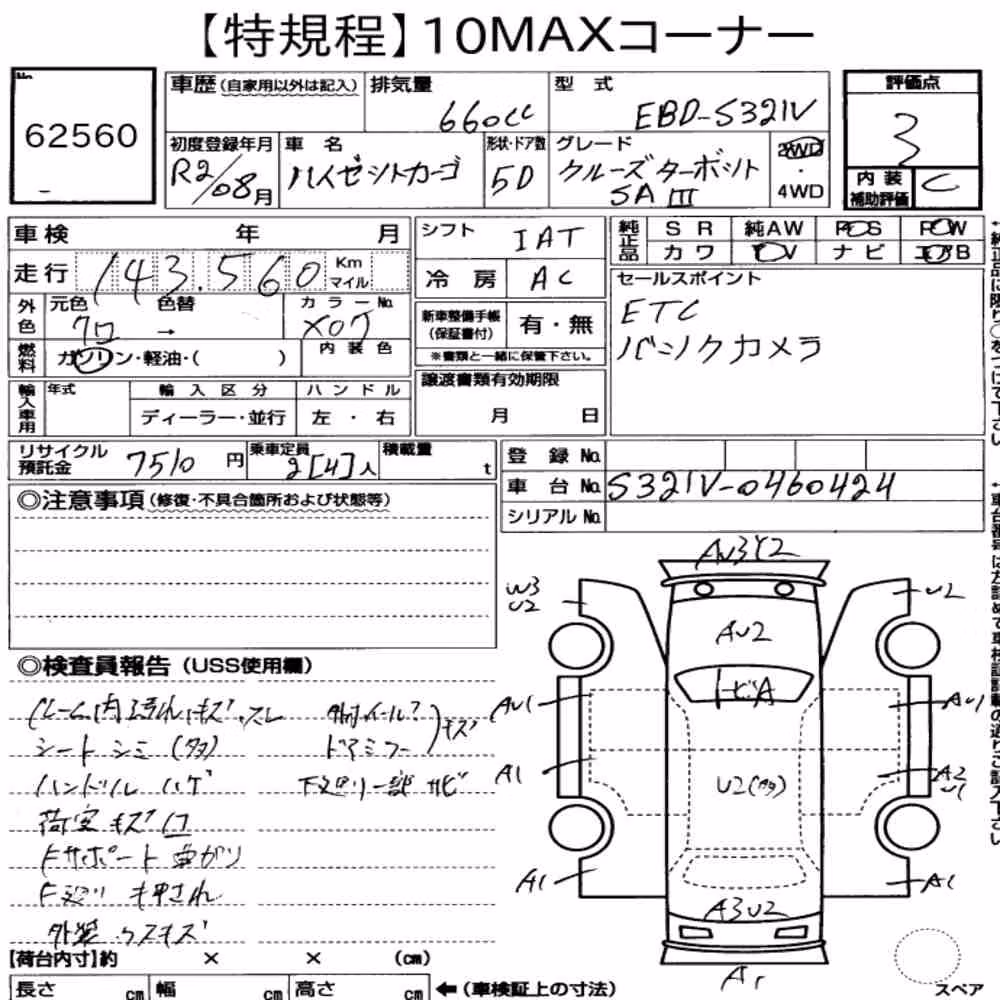 【特規程】10MAXコーナー
No.
62560
車歴 (自家用以外は記入)
排気量
660cc
型式
EBD-S321V
評価点
3
初度登録年月
R2/08月
車名
ハイゼットカーゴ
形状・ドア数
5D
グレード
クルーズターボリミット
SAⅢ
2WD
・
4WD
内装
補助評価
C
車検 年 月
走行 143.560 Km
マイル
シフト IAT
冷房 AC
純正品
SR 純AW PS PW
カワ TV ナビ エアB
外色
元色 色替
クロ →
カラーNo.
X07
新車整備手帳
(保証書付)
有・無
※書類と一緒に保管下さい。
セールスポイント
ETC
バックカメラ
燃料
ガソリン・軽油・( )
内装色
譲渡書類有効期限
月 日
輸入車用
年式
輸入区分
ディーラー・並行
ハンドル
左・右
リサイクル
預託金
7510円
乗車定員
2[4]人
積載量
t
登録No.
車台No. S321V-0460424
シリアルNo.
◎注意事項 (修復・不具合箇所および状態等)
◎検査員報告 (USS使用欄)
ルーム内汚れ、キズ、スレ
シートシミ(多)
ハンドルハゲ
荷室キズ凹
Fサポート曲がり
F廻り押され
外装ウスキズ
外ホイール?
ドアミラー
)キズ
下廻り一部サビ
AU3Y2
W3
U2
U2
AU2
トビA
AU1
AU1
A1
A2
U1
U2(多)
A1
A1
A3U2
A1
スペア
【荷台内寸】約 × × (cm)
長さ cm 幅 cm 高さ cm ←(車検証上の寸法)